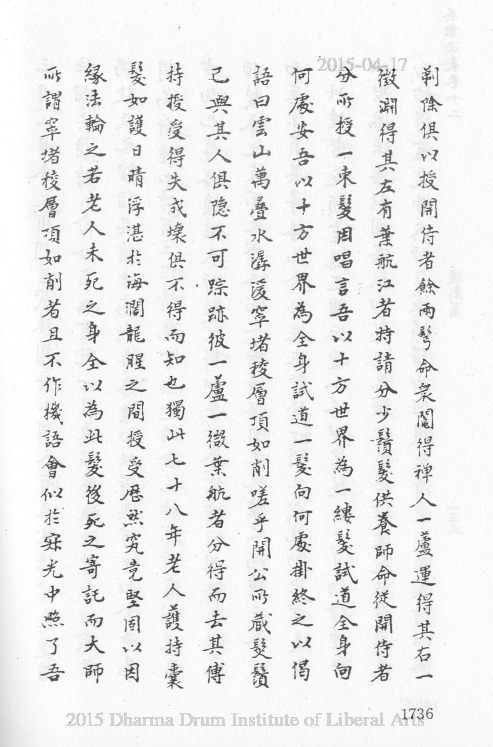 2015-04-17
剃除俱以授開侍者餘兩髩命衆鬮得禅人一蘆運得其右一
微澗得其左有葉航江者特請分少鬚髮供養師命従開侍者
分所授一束髮因唱言吾以十方世界為一縷髮試道全身向
何處安吾以十方世界為全身試道一髮向何處掛終之以偈
語曰雲山萬疊水潺湲窣堵稜層頂如削嗟乎開公所蔵髮鬚
已與其人俱隐不可踪跡彼一蘆一微葉航者分得而去其傅
持授受得失成壊俱不得而知也獨此七十八年老人護持囊
髮如護日睛浮湛扵海濶龍腥之間授受歴然究竟堅固以因
緣法輪之若老人未死之身全以為此髮後死之寄託而大師
所謂窣堵稜層頂如削者且不作機語會似扵寂光中照了吾
1736
2015 Dharma Drum Institute of Liberal Arts